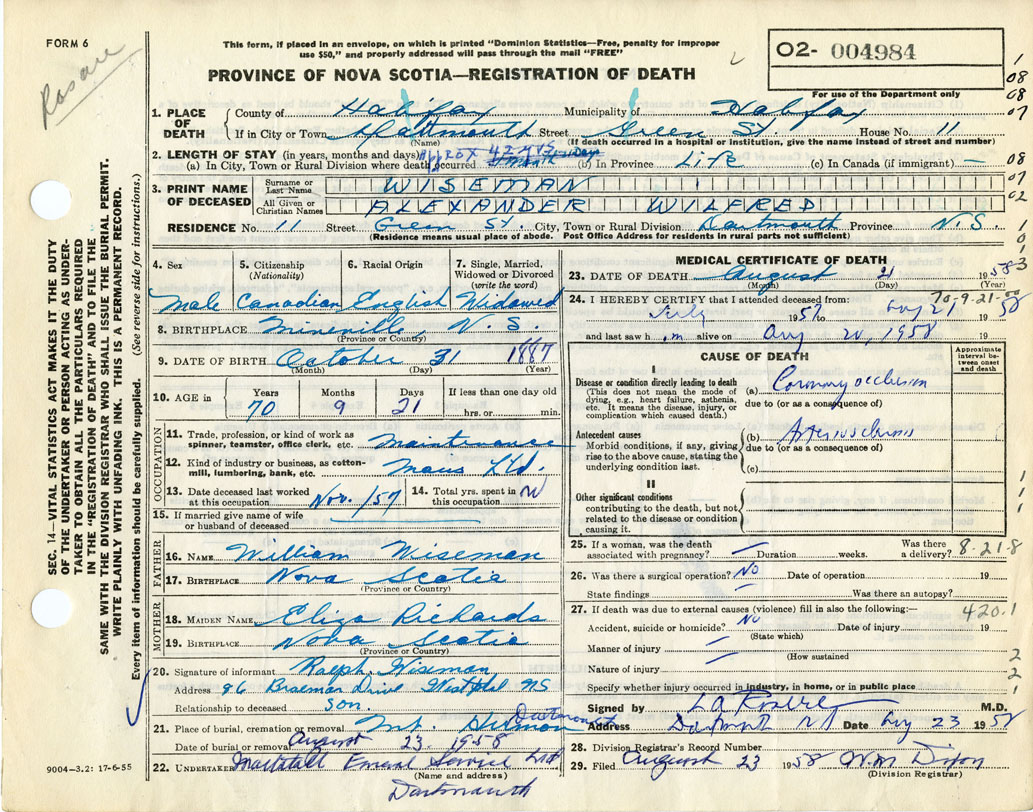 FORM 6
Rosaire
This form, if placed in an envelope, on which is printed "Dominion Statistics—Free, penalty for improper
use $50," and properly addressed will pass through the mail "FREE"
PROVINCE OF NOVA SCOTIA—REGISTRATION OF DEATH
O2- 004984
For use of the Department only
1. PLACE OF DEATH
County of Halifax Municipality of Halifax
If in City or Town Dartmouth Street Green St. House No. 11
(Name) (If death occurred in a hospital or institution, give the name instead of street and number)
2. LENGTH OF STAY (in years, months and days)
(a) In City, Town or Rural Division where death occurred Approx 42 yrs (b) in Province Life (c) In Canada (if immigrant) —
3. PRINT NAME OF DECEASED
Surname or Last Name WISEMAN
All Given or Christian Names ALEXANDER WILFRED
RESIDENCE No. 11 Street Green St. City, Town or Rural Division Dartmouth Province N.S.
(Residence means usual place of abode. Post Office Address for residents in rural parts not sufficient)
4. Sex 5. Citizenship (Nationality) 6. Racial Origin 7. Single, Married, Widowed or Divorced (write the word)
Male Canadian English Widowed
8. BIRTHPLACE Mineville, N.S.
(Province or Country)
9. DATE OF BIRTH October 31 1887
(Month) (Day) (Year)
10. AGE in Years Months Days If less than one day old
70 9 21 hrs. or min.
OCCUPATION
11. Trade, profession, or kind of work as spinner, teamster, office clerk, etc. Maintenance
12. Kind of industry or business, as cotton-mill, lumbering, bank, etc. Ltd.
13. Date deceased last worked at this occupation Nov. /57 14. Total yrs. spent in this occupation
15. If married give name of wife or husband of deceased —
FATHER
16. NAME William Wiseman
17. BIRTHPLACE Nova Scotia
(Province or Country)
MOTHER
18. MAIDEN NAME Eliza Richards
19. BIRTHPLACE Nova Scotia
(Province or Country)
20. Signature of informant Ralph Wiseman
Address 96 Braemar Drive Westphal NS
Relationship to deceased son.
21. Place of burial, cremation or removal Mt. Hermon Dartmouth
Date of burial or removal August 23. 1958
22. UNDERTAKER Mattatall Funeral Service Ltd
(Name and address)
Dartmouth
9004—3.2: 17-6-55
MEDICAL CERTIFICATE OF DEATH
23. DATE OF DEATH August 21 1958
(Month) (Day) (Year)
24. I HEREBY CERTIFY that I attended deceased from: 70-9-21
July 1957 to Aug 21 1958
and last saw him alive on Aug 20, 1958
CAUSE OF DEATH
Approximate interval between onset and death
I
Disease or condition directly leading to death
(This does not mean the mode of dying, e.g., heart failure, asthenia, etc. It means the disease, injury, or complication which caused death.)
(a) Coronary occlusion
due to (or as a consequence of)
Antecedent causes
Morbid conditions, if any, giving rise to the above cause, stating the underlying condition last.
(b) Arteriosclerosis
due to (or as a consequence of)
(c)
II
Other significant conditions
contributing to the death, but not related to the disease or condition causing it.
25. If a woman, was the death associated with pregnancy? — Duration weeks. Was there a delivery? 8-21-8
26. Was there a surgical operation? No Date of operation 19
State findings Was there an autopsy?
27. If death was due to external causes (violence) fill in also the following:— 420.1
Accident, suicide or homicide? No Date of injury 19
(State which)
Manner of injury —
(How sustained)
Nature of injury —
Specify whether injury occurred in industry, in home, or in public place
Signed by M.D.
Address Dartmouth NS Date Aug 23 1958
28. Division Registrar's Record Number
29. Filed August 23 1958 W.M. Dixon
(Division Registrar)
SEC. 14—VITAL STATISTICS ACT MAKES IT THE DUTY
OF THE UNDERTAKER OR PERSON ACTING AS UNDER-
TAKER TO OBTAIN ALL THE PARTICULARS REQUIRED
IN THE "REGISTRATION OF DEATH" AND TO FILE THE
SAME WITH THE DIVISION REGISTRAR WHO SHALL ISSUE THE BURIAL PERMIT.
WRITE PLAINLY WITH UNFADING INK. THIS IS A PERMANENT RECORD.
Every item of information should be carefully supplied. (See reverse side for instructions.)
1
08
08
07
08
07
02
1
9
9
3
1
1
1
2
2
1